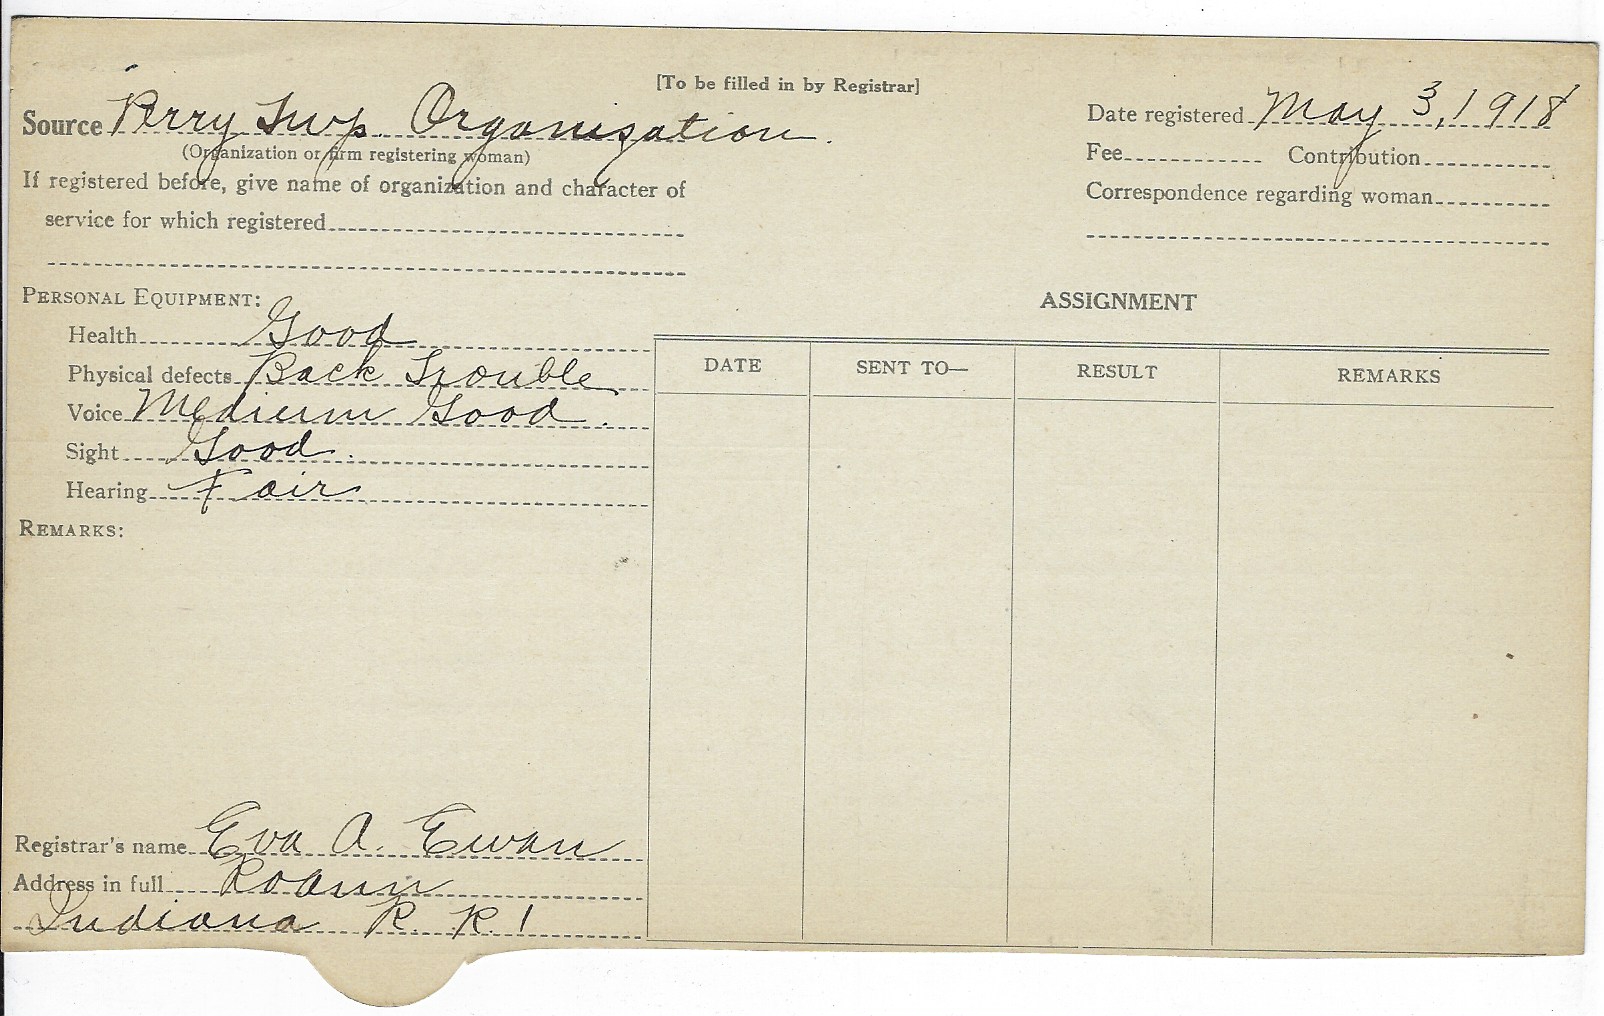 [To be filled in by Registrar]
Source Perry Twp. Organization.
(Organization or firm registering woman)
If registered before, give name of organization and character of
service for which registered
Date registered May 3, 1918
Fee Contribution
Correspondence regarding woman
PERSONAL EQUIPMENT:
Health Good
Physical defects Back Trouble
Voice Medium Good.
Sight Good.
Hearing Fair
REMARKS:
ASSIGNMENT
DATE SENT TO— RESULT REMARKS
Registrar's name Eva A. Ewan
Address in full Roann
Indiana R. R. 1